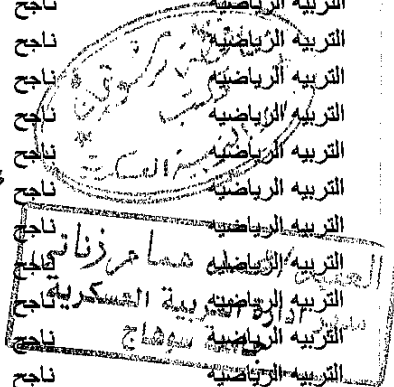 التربيه الرياضيه ناجح
التربيه الرياضيه ناجح
التربيه الرياضيه ناجح
التربيه الرياضيه ناجح
التربيه الرياضيه ناجح
التربيه الرياضيه ناجح
التربيه الرياضيه ناجح
التربيه الرياضيه ناجح
التربيه الرياضيه ناجح
التربيه الرياضيه ناجح
التربيه الرياضيه ناجح
همام زناتي
مدير ادارة التربية العسكرية
سوهاج